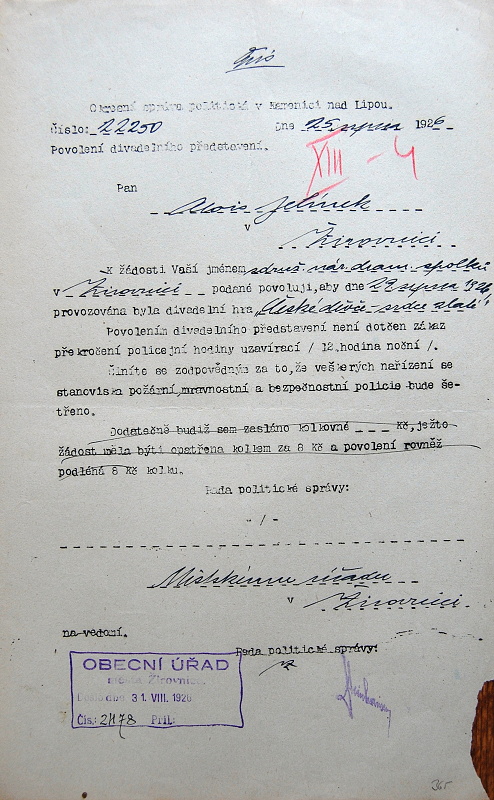 Opis
Okresní správa politická v Kamenici nad Lipou.
Číslo: 22250 Dne 25 srpna 1926
Povolení divadelního představení.
XIII - 4
Pan
Alois Jelínek
v
Žirovnici
K žádosti Vaší jménem sdruž. nár. dram. spolků
v Žirovnici podané povoluji, aby dne 29 srpna 1926
provozována byla divadelní hra "České děvče - srdce zlaté"
Povolením divadelního představení není dotčen zákaz
překročení policejní hodiny uzavírací / 12.hodina noční /.
Činíte se zodpovědným za to, že veškerých nařízení se
stanoviska požární, mravnostní a bezpečnostní policie bude še-
třeno.
Dodatečně budiž sem zasláno kolkovné _ _ _ Kč, ježto
žádost měla býti opatřena kolkem za 8 Kč a povolení rovněž
podléhá 8 Kč kolku.
Rada politické správy:
- / -
Městskému úřadu
v Žirovnici.
na vědomí.
Rada politické správy:
OBECNÍ ÚŘAD
města Žirovnice.
Došlo dne 31. VIII. 1926
Čís.: 2478 Příl.:
365